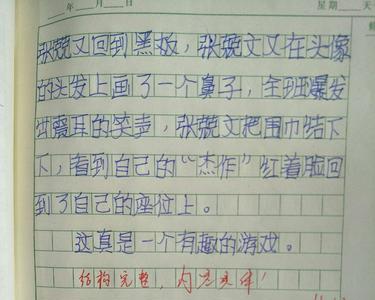 年 月 日 星期 天
张兢又回到黑板，张兢文又在头像
的头发上画了一个鼻子，全班爆发
出震耳的笑声，张兢文把围巾结下
下，看到自己的“杰作”红着脸回
到了自己的座位上。
这真是一个有趣的游戏。
结构完整，内容具体！